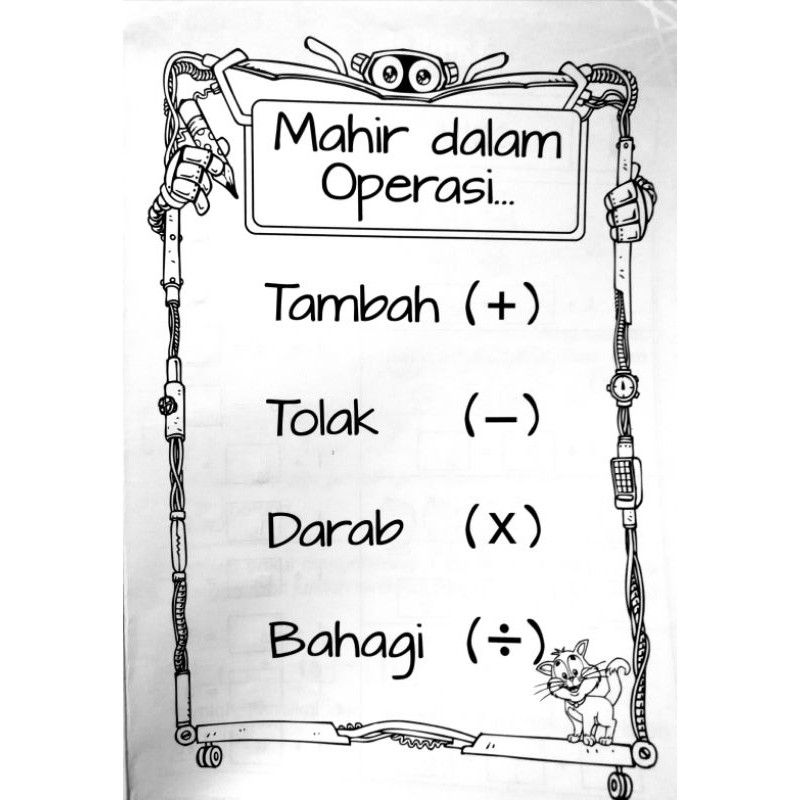 Mahir dalam
Operasi...
Tambah (+)
Tolak (−)
Darab (x)
Bahagi (÷)